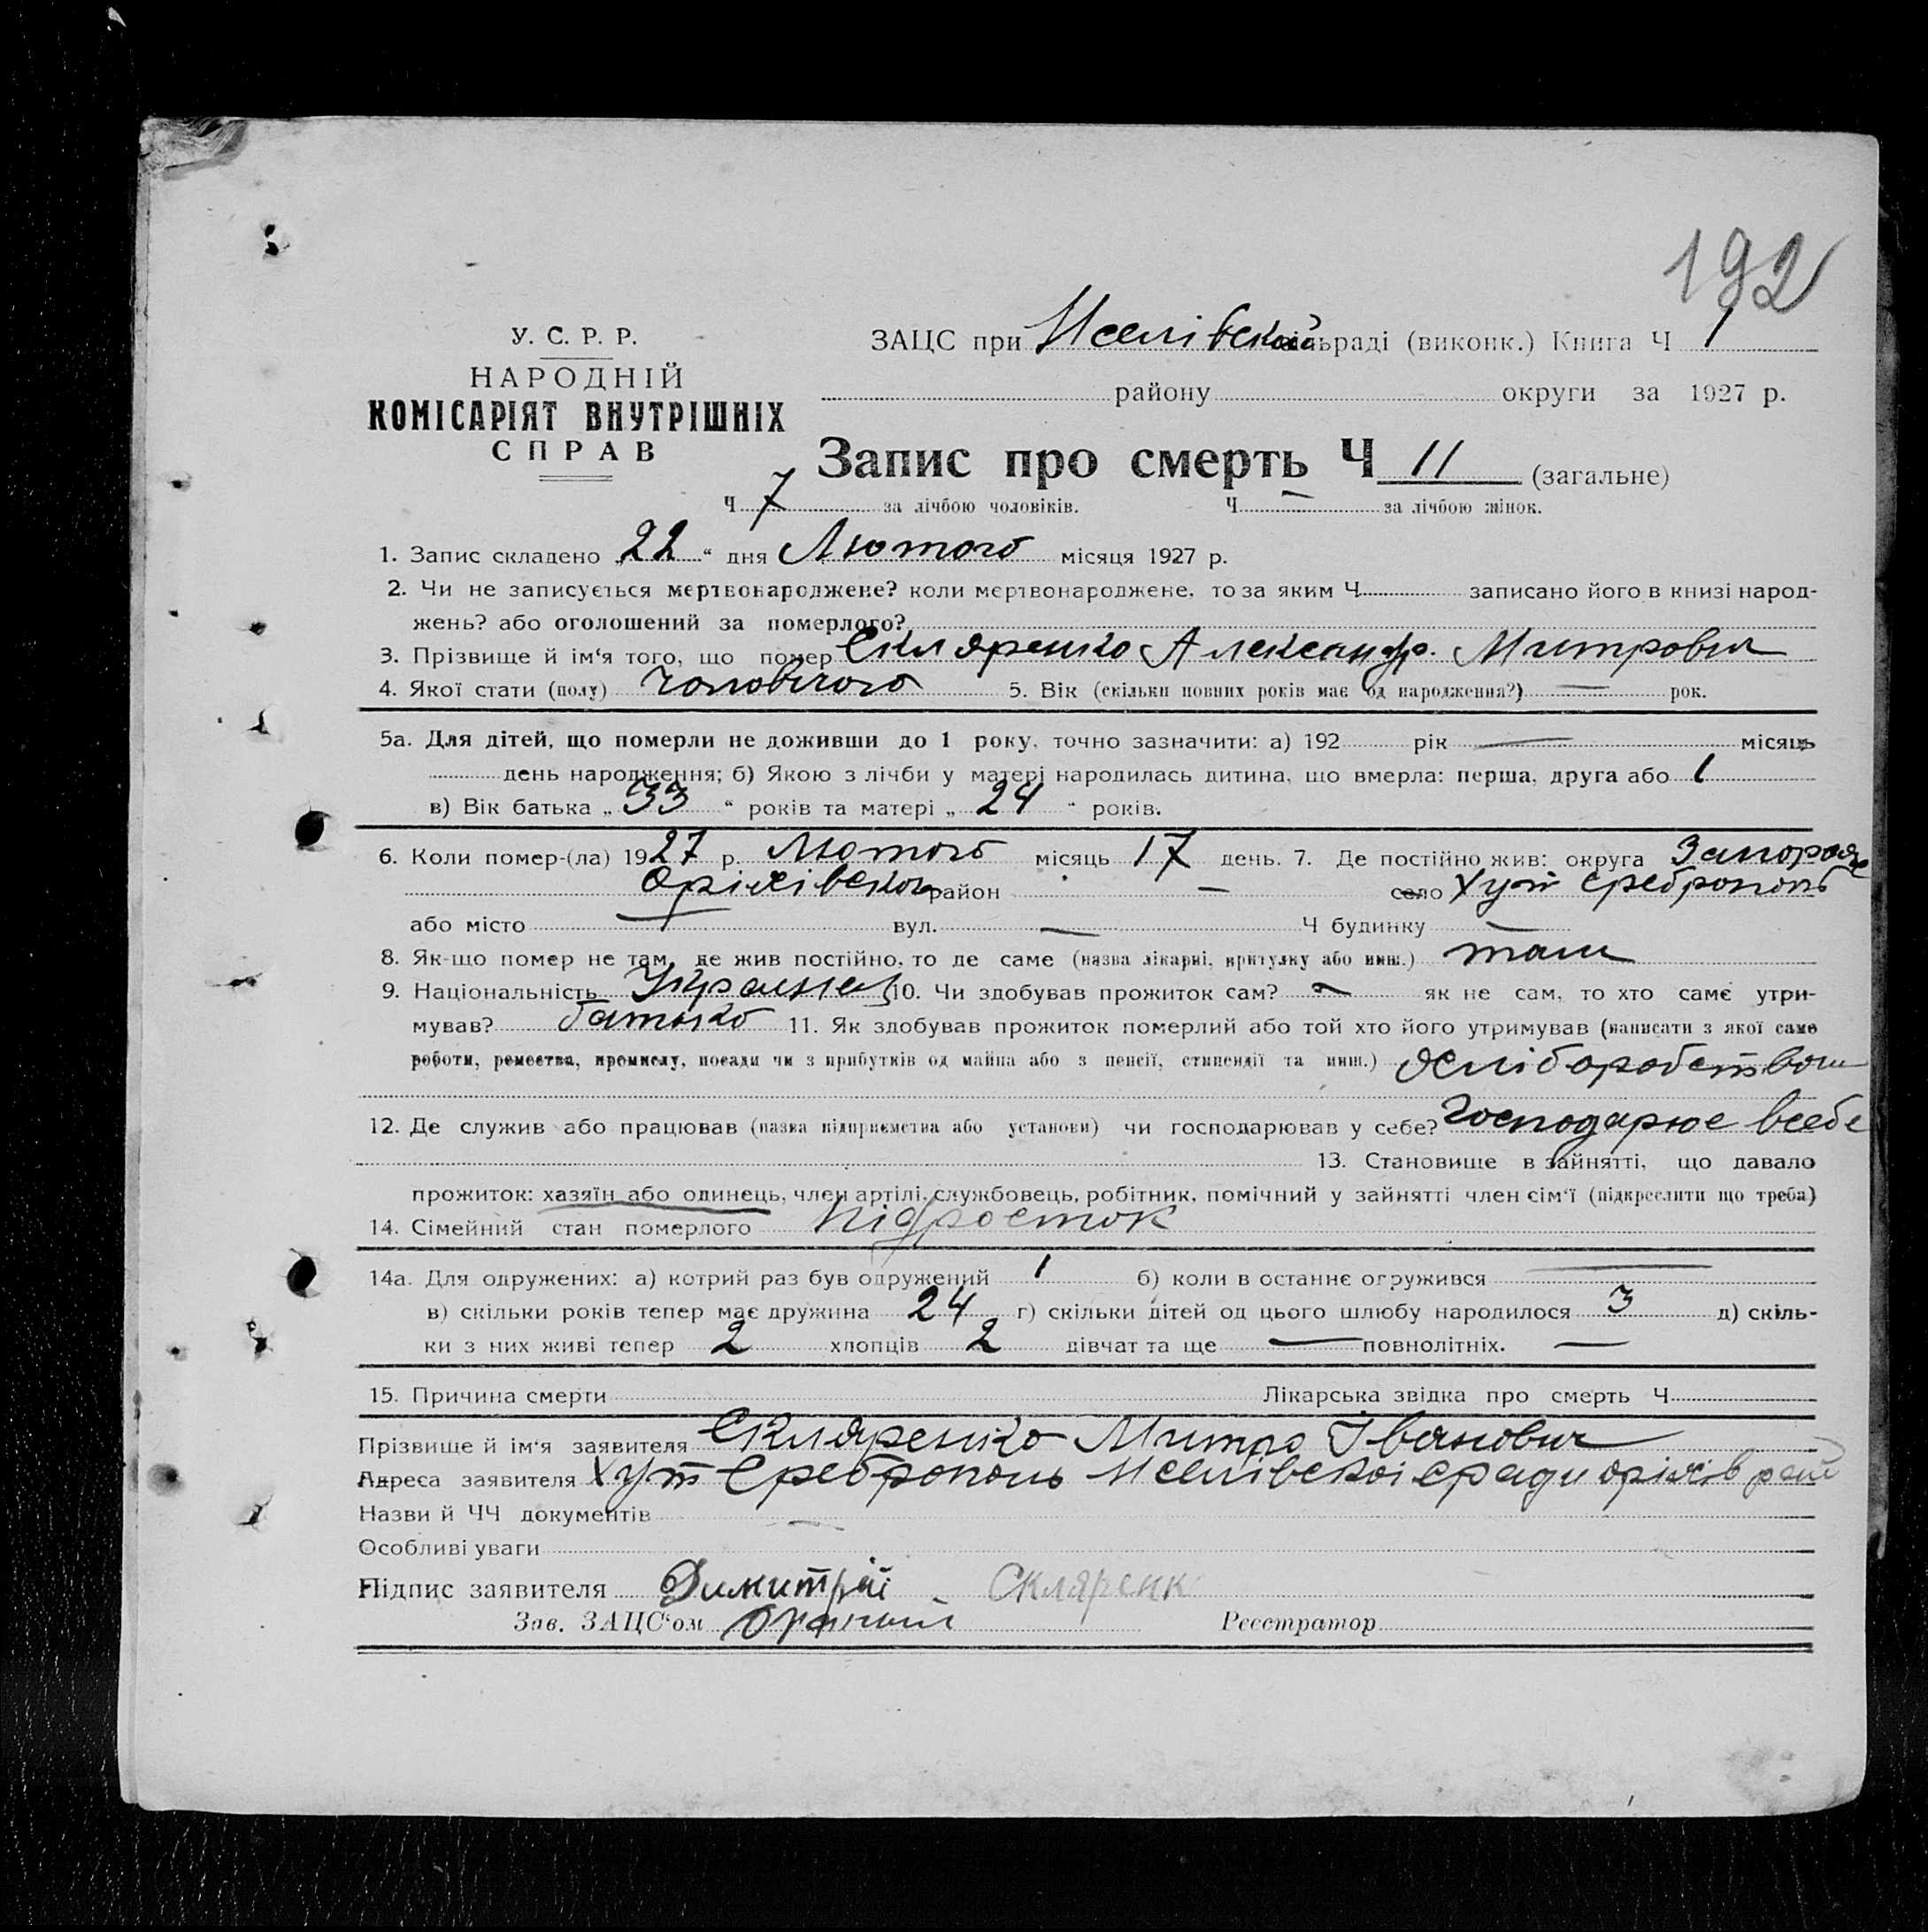 192
У. С. Р. Р.
НАРОДНІЙ
КОМІСАРІЯТ ВНУТРІШНІХ
СПРАВ
ЗАЦС при сільраді (виконк.) Книга Ч 1
району округи за 1927 р.
Запис про смерть Ч 11 (загальне)
Ч 7 за лічбою чоловіків. Ч — за лічбою жінок.
1. Запис складено „22“ дня Лютого місяця 1927 р.
2. Чи не записується мертвонароджене? коли мертвонароджене, то за яким Ч записано його в книзі народ-
жень? або оголошений за померлого?
3. Прізвище й ім'я того, що помер Скляренко Александр. Митрович
4. Якої стати (полу) чоловічого 5. Вік (скільки повних років має од народження?) — рок.
5а. Для дітей, що померли не доживши до 1 року, точно зазначити: а) 192 рік — місяць
день народження; б) Якою з лічби у матері народилась дитина, що вмерла: перша, друга або 1
в) Вік батька „33“ років та матері „24“ років.
6. Коли помер-(ла) 1927 р. Лютого місяць 17 день. 7. Де постійно жив: округа Запоріж
Оріхівског район — село Хут Среброполь
або місто — вул. — Ч будинку —
8. Як-що помер не там, де жив постійно, то де саме (назва лікарні, притулку або инш.) там
9. Національність Украинец 10. Чи здобував прожиток сам? — як не сам, то хто саме утри-
мував? батько 11. Як здобував прожиток померлий або той хто його утримував (написати з якої саме
роботи, ремества, промислу, посади чи з прибутків од майна або з пенсії, стипендії та инш.) Хліборобством
12. Де служив або працював (назва підприємства або установи) чи господарював у себе? Господарює всебе
13. Становище в зайнятті, що давало
прожиток: хазяїн або одинець, член артілі, службовець, робітник, помічний у зайнятті член сім'ї (підкреслити що треба)
14. Сімейний стан померлого підросток
14а. Для одружених: а) котрий раз був одружений 1 б) коли в останнє огружився —
в) скільки років тепер має дружина 24 г) скільки дітей од цього шлюбу народилося 3 д) скіль-
ки з них живі тепер 2 хлопців 2 дівчат та ще — повнолітніх. —
15. Причина смерти Лікарська звідка про смерть Ч
Прізвище й ім'я заявителя Скляренко Митро Іванович
Адреса заявителя Хут Среброполь сради оріхів рай
Назви й ЧЧ документів —
Особливі уваги
Підпис заявителя Димитрій Скляренк
Зав. ЗАЦС'ом Реєстратор